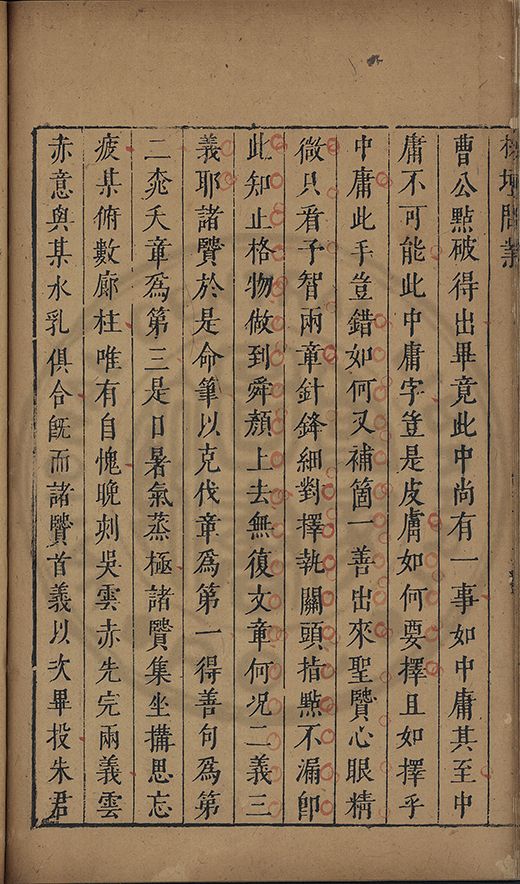 榕壇問業
曹公點破得出畢竟此中尚有一事如中庸其至中
庸不可能此中庸字豈是皮膚如何要擇且如擇乎
中庸此手豈錯如何又補箇一善出來聖賢心眼精
微只看予智兩章針鋒細對擇執關頭指點不漏卽
此知止格物做到舜顏上去無復文章何况二義三
義耶諸賢於是命筆以克伐章爲第一得善句爲第
二夭夭章爲第三是日暑氣蒸極諸賢集坐搆思忘
疲某俯數廊柱唯有自愧晚刻吳雲赤先完兩義雲
赤意與某水乳俱合旣而諸賢首義以次畢投朱君